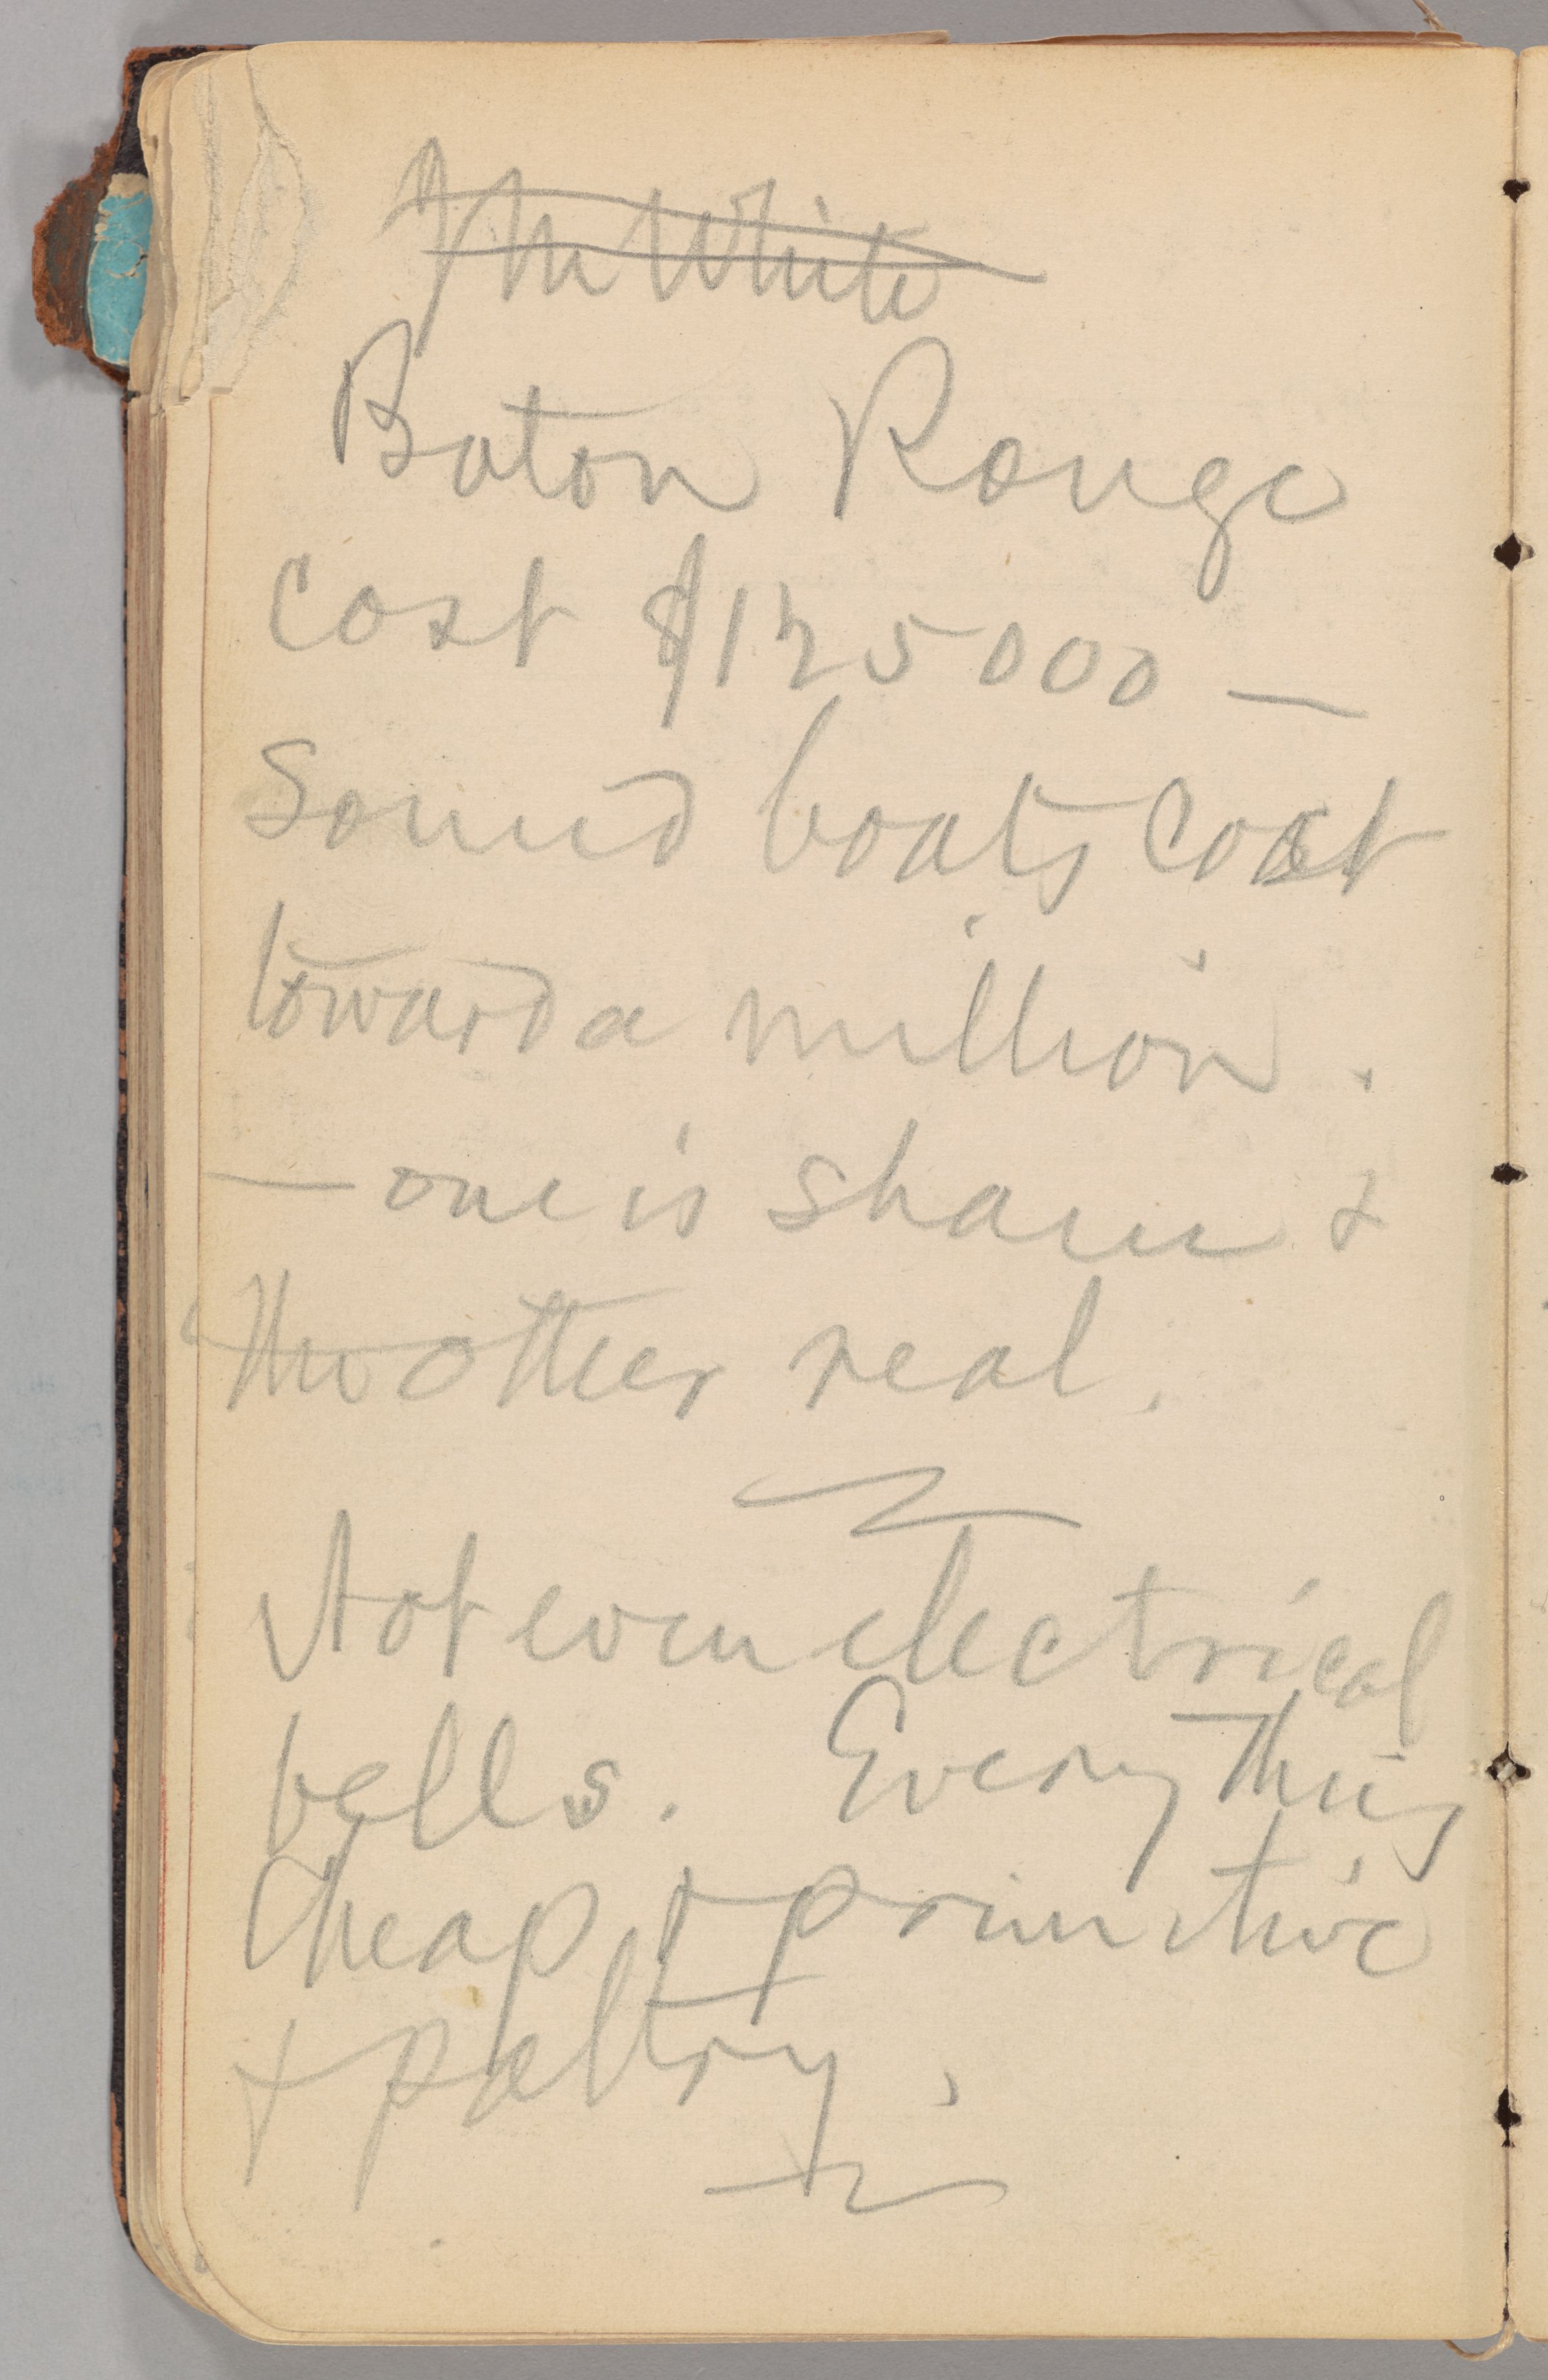 Jn White
Baton Rouge
cost $125000 —
Sound boats cost
toward a million.
— one is sham &
the other real.
Not even electrical
bells. Everything
cheap & primitive
& paltry.